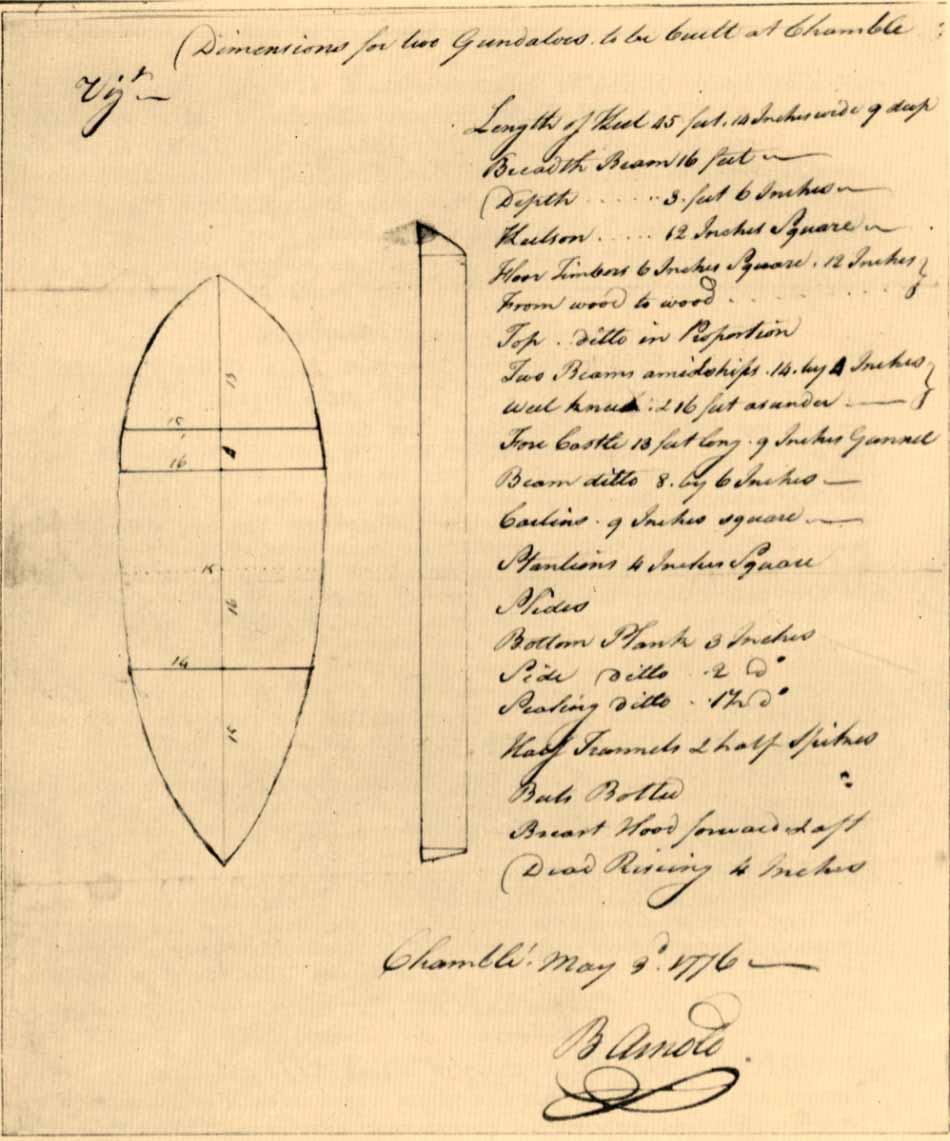 Dimensions for two Gundaloes to be built at Chamble
Vizt
Length of Keel 45 feet, 14 Inches wide 9 deep
Breadth Beam 16 feet
Depth ...... 3 feet 6 Inches
Keelson ..... 12 Inches Square
Floor Timbers 6 Inches Square . 12 Inches
From wood to wood
Top . ditto in Proportion
Two Beams amidships . 14 . by 4 Inches
well kneed . & 16 feet asunder
Fore Castle 13 feet long . 9 Inches Gunnel
Beam ditto 8 . by 6 Inches
Carlins . 9 Inches square
Stantions 4 Inches Square
Slides
Bottom Plank 3 Inches
Side ditto . 2 do
Sealing ditto .
Half Trannels & half Spikes
Buts Bolted
Breast Hood forward & aft
Dead Rising 4 Inches
13
15
16
15
16
14
15
Chamblé . May 3d . 1776
B Arnold